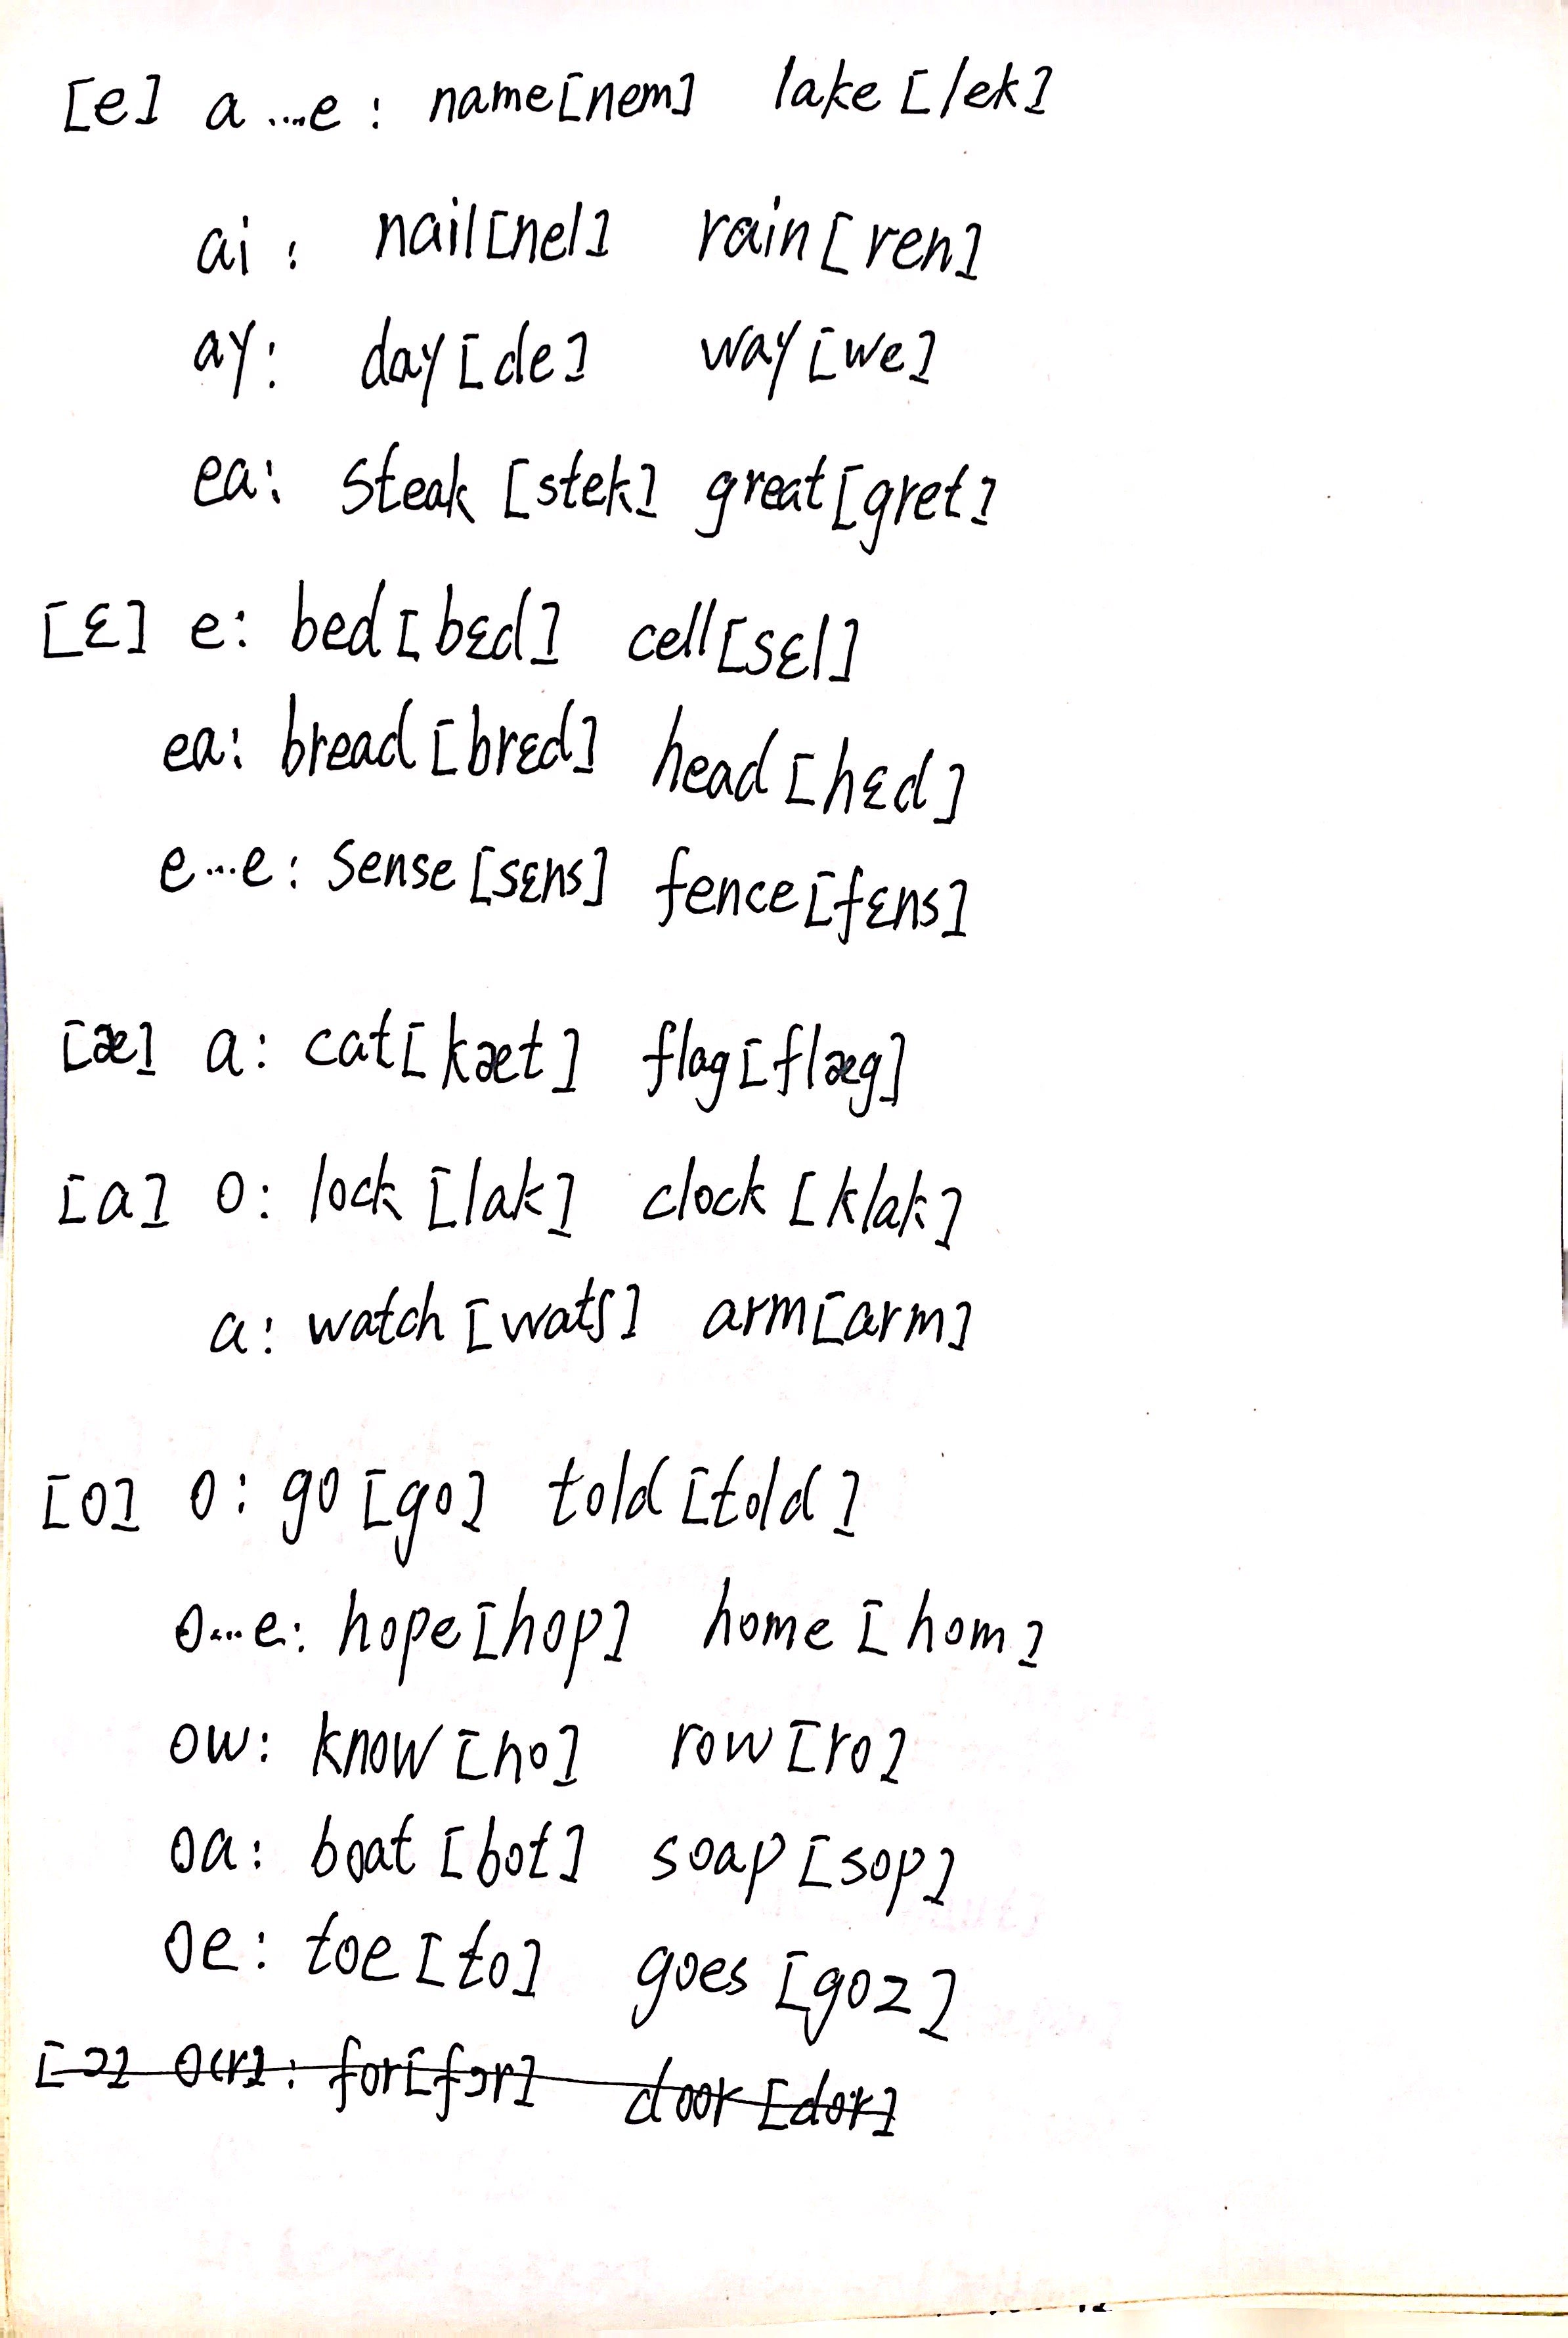 [e] a....e: name[nem] lake[lek]
ai: nail[nel] rain[ren]
ay: day[de] way[we]
ea: steak[stek] great[gret]
[ɛ] e: bed[bɛd] cell[sɛl]
ea: bread[brɛd] head[hɛd]
e...e: sense[sɛns] fence[fɛns]
[æ] a: cat[kæt] flag[flæg]
[a] o: lock[lak] clock[klak]
a: watch[watʃ] arm[arm]
[o] o: go[go] told[told]
o...e: hope[hop] home[hom]
ow: know[no] row[ro]
oa: boat[bot] soap[sop]
oe: toe[to] goes[goz]
[ɔ] o(r): for[fɔr] door[dɔr]